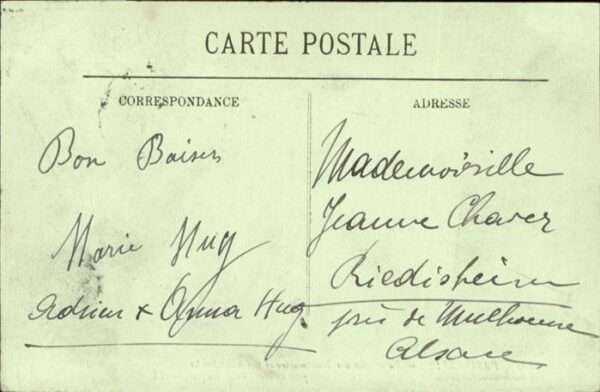 CARTE POSTALE
CORRESPONDANCE
ADRESSE
Bon Baisers
Marie Hug
Adrien & Anna Hug
Mademoiselle
Jeanne Chavez
Riedisheim
près de Mulhouse
Alsace